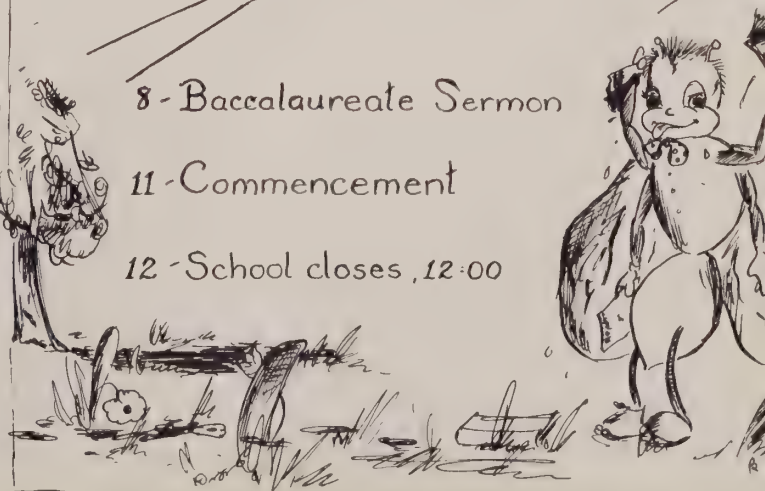 8 - Baccalaureate Sermon
11 - Commencement
12 - School closes, 12:00